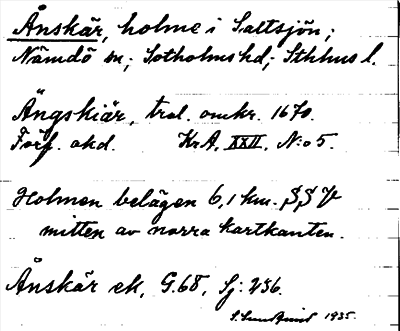 Ånskär, holme i Saltsjön;
Nämdö sn; Sotholms hd; Sthlms l.
Ängskiär, trol. omkr. 1670.
Förf. okd. KrA, XXII, N:o 5.
Holmen belägen 6,1 km. SSV
mitten av norra kartkanten.
Ånskär ek, G.68, Sj: 236.
S. Sundqvist 1935.